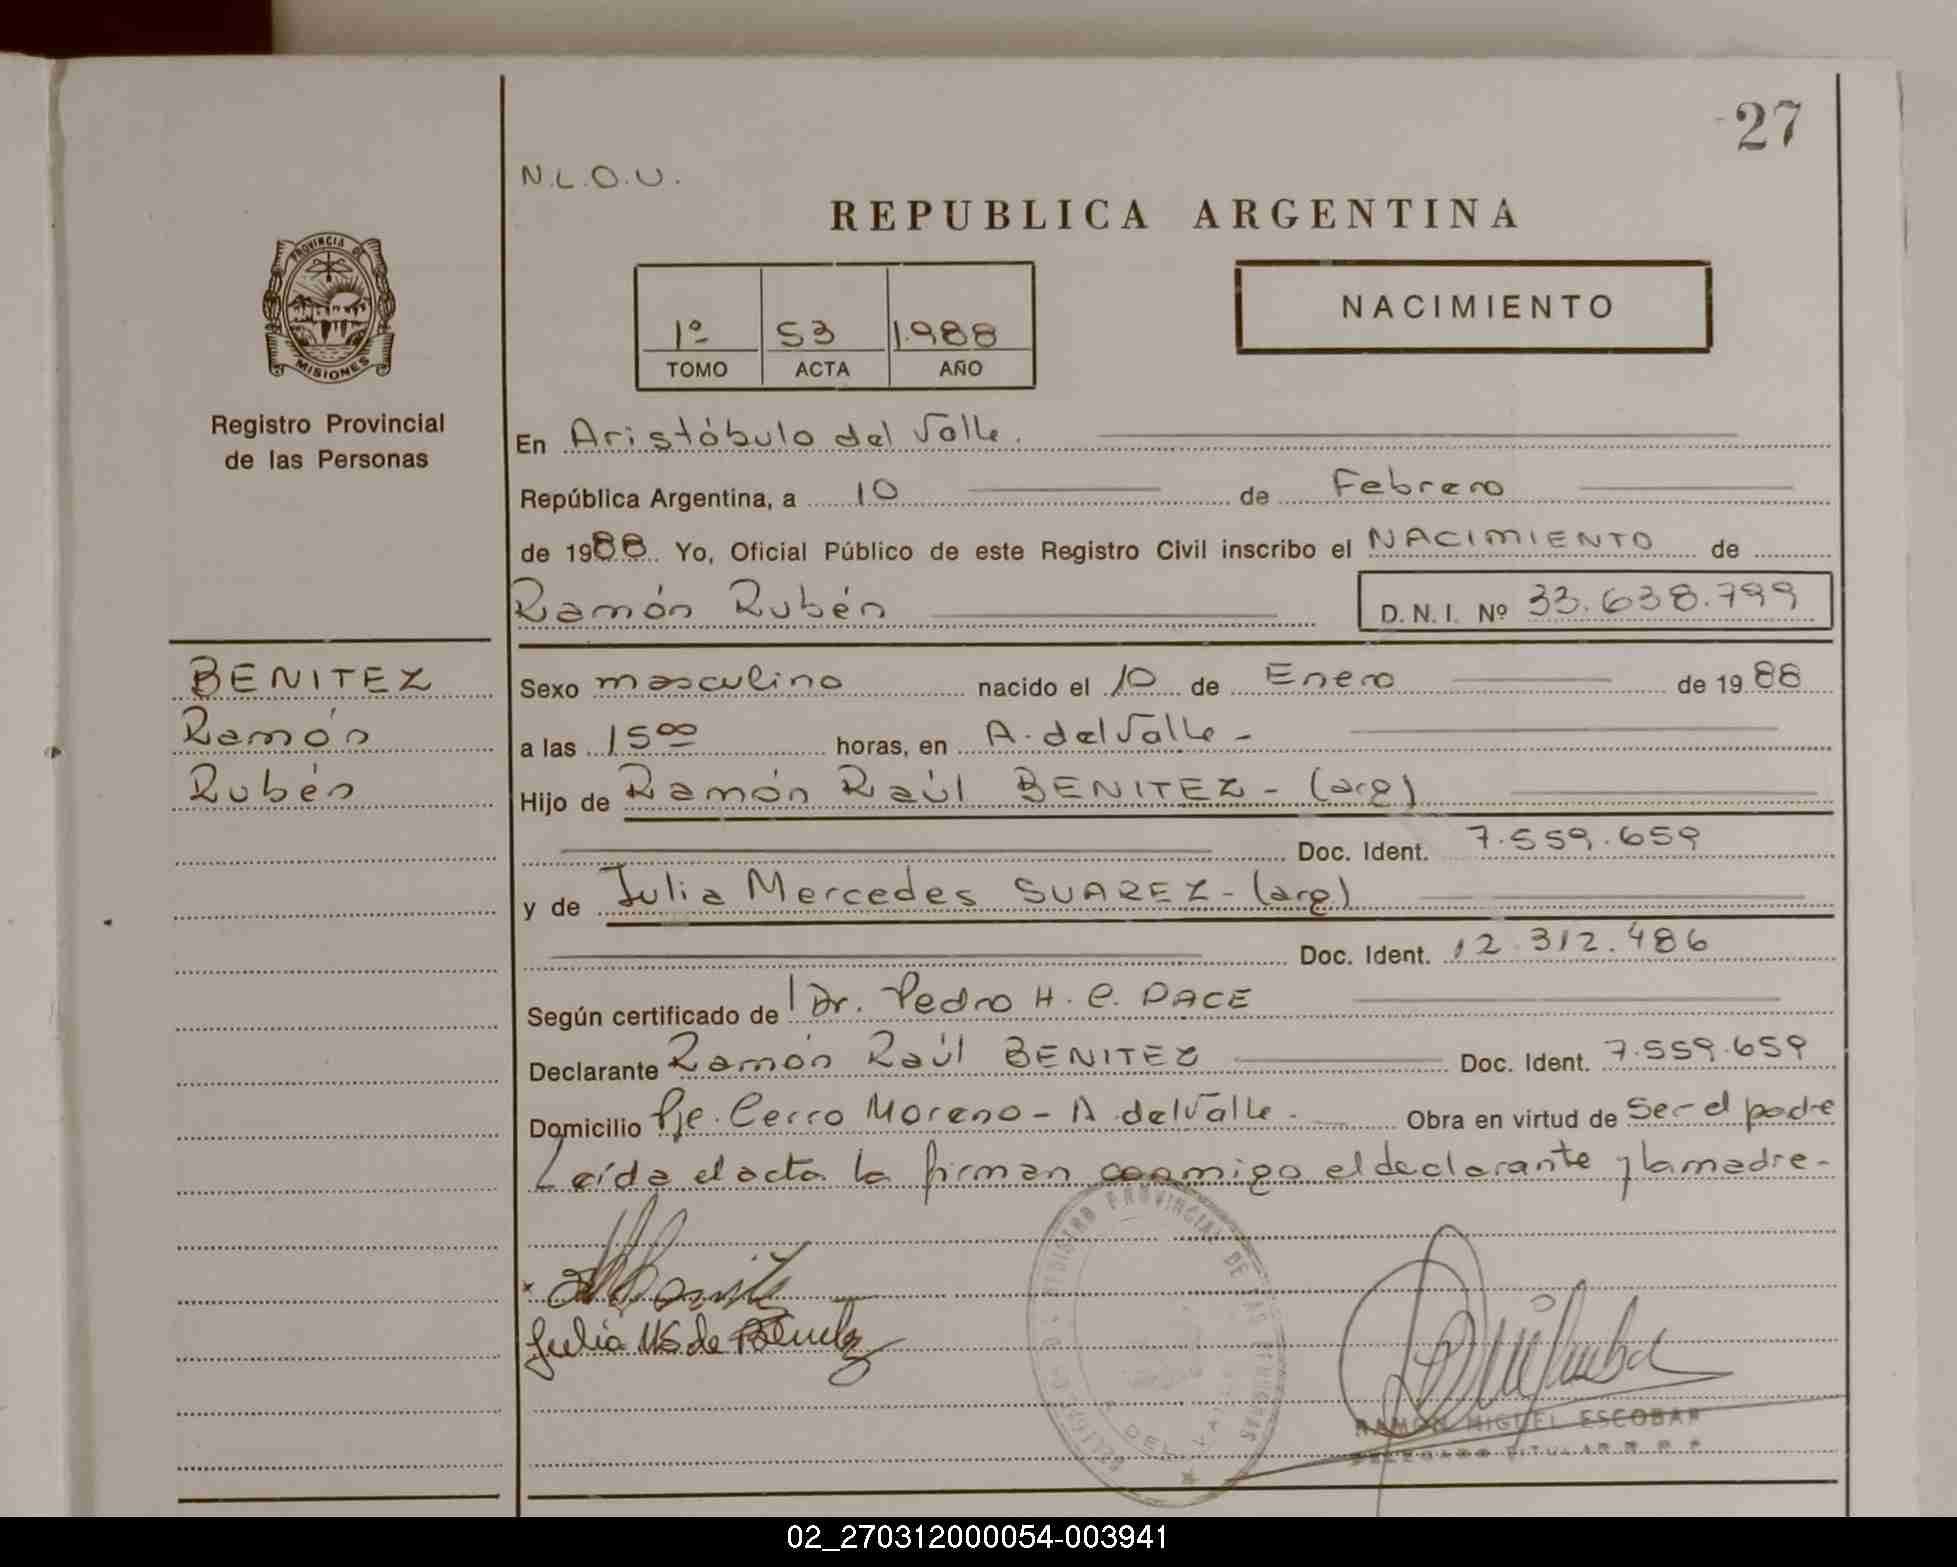 27
N.L.O.U.
REPUBLICA ARGENTINA
PROVINCIA DE
MISIONES
Registro Provincial
de las Personas
1º 53 1.988
TOMO ACTA AÑO
NACIMIENTO
En Aristóbulo del Valle.
República Argentina, a 10 de Febrero
de 1988 Yo, Oficial Público de este Registro Civil inscribo el NACIMIENTO de
Ramón Rubén D.N.I. Nº 33.638.799
BENITEZ
Ramón
Rubén
Sexo masculino nacido el 10 de Enero de 1988
a las 15oo horas, en A. del Valle -
Hijo de Ramón Raúl BENITEZ - (arg)
Doc. Ident. 7.559.659
y de Julia Mercedes SUAREZ - (arg)
Doc. Ident. 12.312.486
Según certificado de Dr. Pedro H. C. PACE
Declarante Ramón Raúl BENITEZ Doc. Ident. 7.559.659
Domicilio Pje. Cerro Moreno - A. del Valle - Obra en virtud de Ser el padre
Leída el acta la firman conmigo el declarante y la madre -
REGISTRO PROVINCIAL DE LAS PERSONAS
Julia MS de Benitez
DEL VALLE
RAMON MIGUEL ESCOBAR
DELEGADO TITULAR R. P. P.
02_270312000054-003941